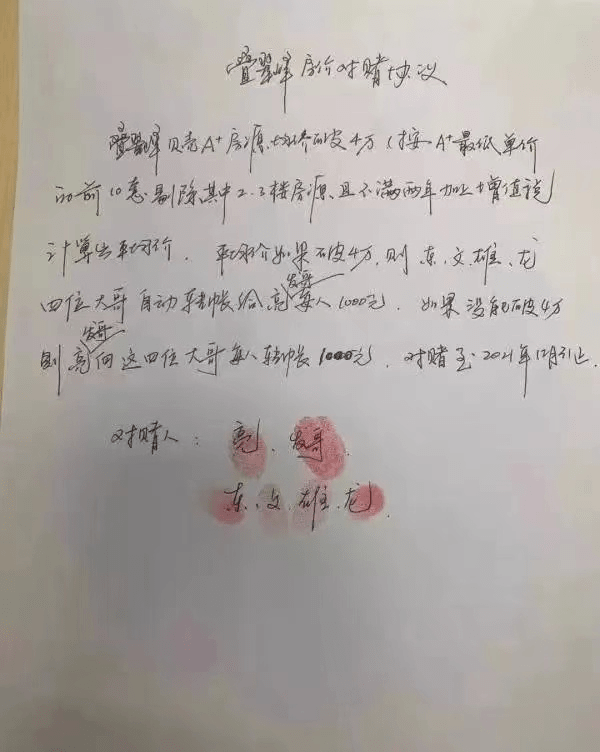 叠翠峰房价对赌协议
叠翠峰贝壳A+房源均价破4万(按A+最低单价
的前10套剔除其中2.3楼房源且不满两年加上增值税
计算出平均价. 平均价如果破4万,则东、文、雄、龙
四位大哥自动转帐给亮、发哥每人1000元. 如果没能破4万
则亮、发哥向这四位大哥每人转帐1000元. 对赌至2021年12月31止.
对赌人: 亮、发哥.
东、文、雄、龙.